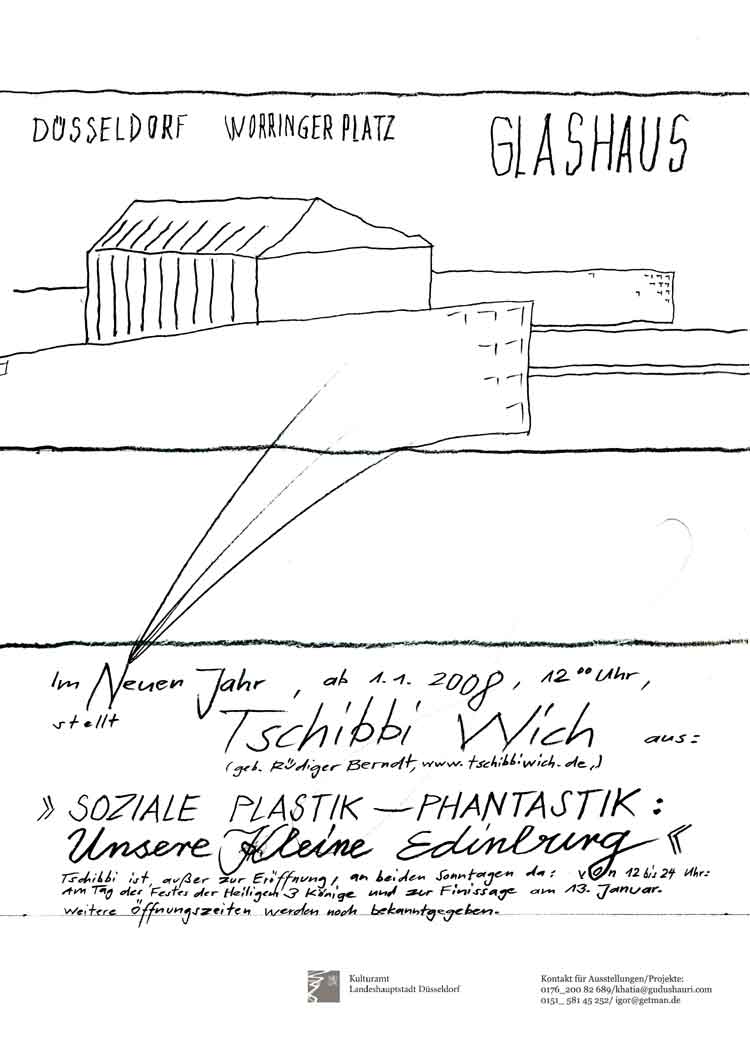 DÜSSELDORF WORRINGER PLATZ GLASHAUS
Im Neuen Jahr, ab 1.1. 2008, 12⁰⁰ Uhr,
stellt Tschibbi Wich aus:
(geb. Rüdiger Berndt, www.tschibbiwich.de,)
» SOZIALE PLASTIK — PHANTASTIK :
Unsere Kleine Edinburg «
Tschibbi ist, außer zur Eröffnung, an beiden Sonntagen da: von 12 bis 24 Uhr:
Am Tag des Festes der Heiligen 3 Könige und zur Finissage am 13. Januar.
Weitere Öffnungszeiten werden noch bekanntgegeben.
Kulturamt
Landeshauptstadt Düsseldorf
Kontakt für Ausstellungen/Projekte:
0176_200 82 689/khatia@gudushauri.com
0151_ 581 45 252/ igor@getman.de